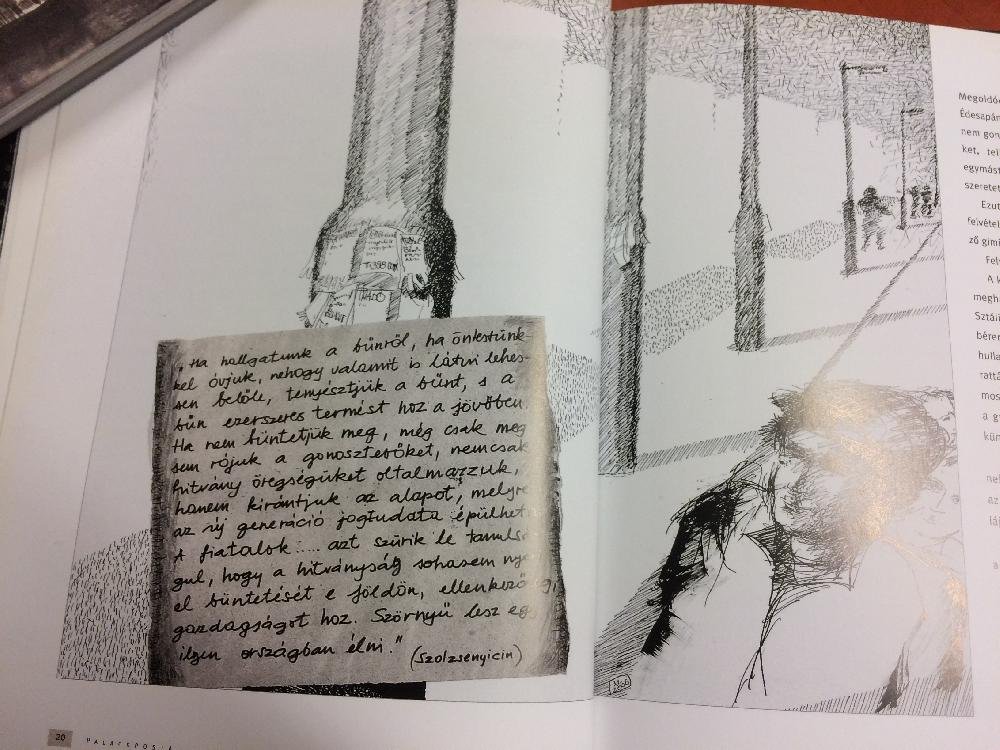 „Ha hallgatunk a bűnről, ha önkörünk-
kel óvjuk, nehogy valamit is látni lehes-
sen belőle, tenyésztjük a bűnt, s a
bűn ezerszeres termést hoz a jövőben.
Ha nem büntetjük meg, még csak meg
sem rójuk a gonosztevőket, nemcsak
hitvány öregségüket oltalmazzuk,
hanem kirántjuk az alapot, melyre
az új generáció jogtudata épülhet
A fiatalok .... azt szűrik le tanulsá
gul, hogy a hitványság sohasem nye
el büntetését e földön, ellenkezőleg,
gazdagságot hoz. Szörnyű lesz egy
ilyen országban élni."
(Szolzsenyicin)
ELADÓ
20
Megoldó
Édesapán
nem gon
ket, tel
egymást
szeretet
Ezut
felvétel
ző gimi
Fel
A k
megh
Sztáli
bérer
hulla
rattá
mos
a g
kün
nel
az
lá
a